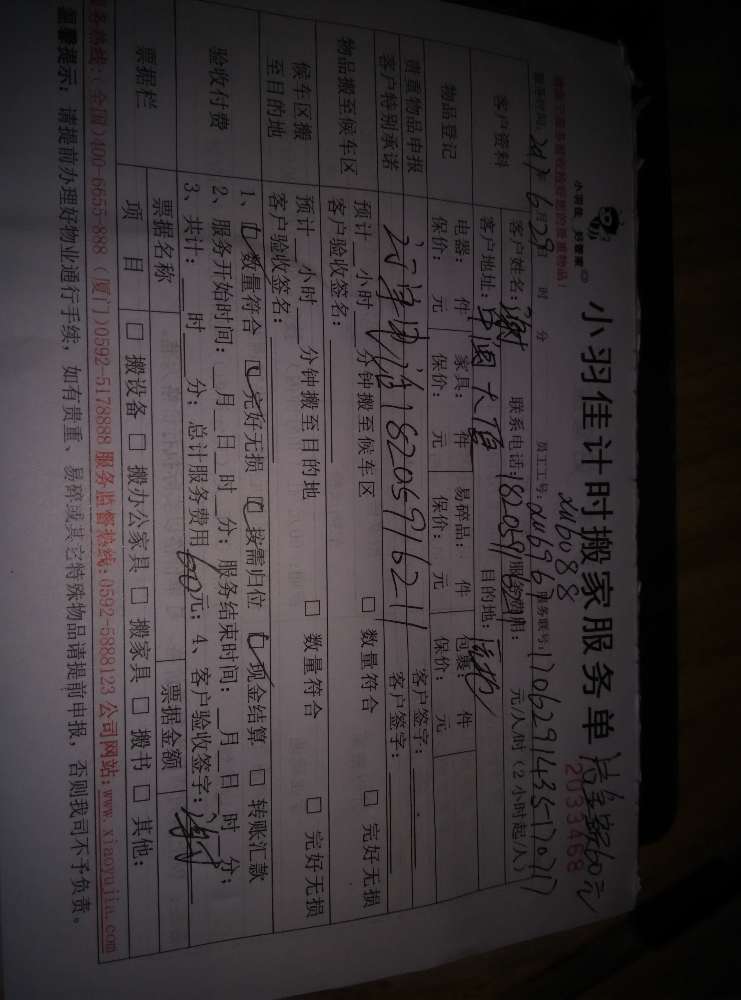 小羽佳 好管家
小羽佳计时搬家服务单 结余额60元
2033468
xm6088
服务时间: 2017年6月29日 时 分 员工工号: xm6967 服务联号: 1706291435170717
客户资料
客户姓名: 谢 联系电话: 18205916211 服务费用: 元/人/时(2小时起/人)
客户地址: 中闽大厦 目的地:
物品登记
电器: 件 家具: 件 易碎品: 件 包裹: 件
保价: 元 保价: 元 保价: 元 保价: 元
贵重物品申报
客户特别承诺
客户签字:
客户签字:
电话18205916211
物品搬至候车区
预计 小时 分钟搬至候车区 □ 数量符合 □ 完好无损
客户验收签名:
候车区搬
至目的地
预计 小时 分钟搬至目的地 □ 数量符合 □ 完好无损
客户验收签名:
验收付费
1、□数量符合 □完好无损 □按需归位 □现金结算 □ 转账汇款
2、服务开始时间: 月 日 时 分; 服务结束时间: 月 日 时 分;
3、共计: 时 分; 总计服务费用 60 元; 4、客户验收签字: 谢
票据栏
票据名称 票据金额
项 目 □ 搬设备 □ 搬办公家具 □ 搬家具 □ 搬书 □ 其他:
服务热线:(全国)400-6655-888 (厦门)0592-5178888 服务监督热线:0592-5888123 公司网站:www.xiaoyujia.com
温馨提示: 请提前办理好物业通行手续, 如有贵重、易碎或其它特殊物品请提前申报, 否则我司不予负责。